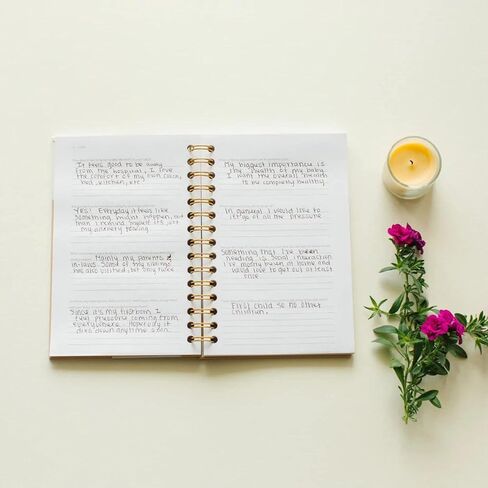 It feels good to be away
from the hospital, I love
the comfort of my own couch,
bed, kitchen, etc.
Yes! Everyday it feels like
something might happen, but
then I remind myself it's just
my anxiety talking.
Mainly my parents &
in-laws. Some of my siblings
has also visited, but only twice
Since it's my firstborn, I
feel pressure coming from
everywhere. Hopefully it
dies down anytime soon.
My biggest importance is
the health of my baby.
I want the overall health
to be completely healthy.
In general I would like to
let go of all the pressure.
Something that I've been
needing is social interaction
I've mostly been at home and
would love to get out at least
once.
First child so no other
children.